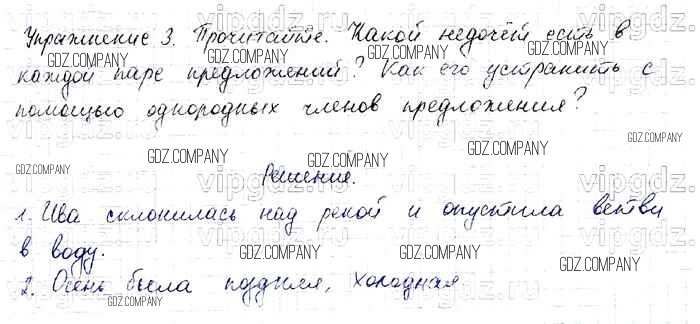 Упражнение 3. Прочитайте. Какой недочёт есть в
каждой паре предложений? Как его устранить с
помощью однородных членов предложения?
Решение.
1. Ива склонилась над рекой и опустила ветви
в воду.
2. Осень была поздняя, холодная